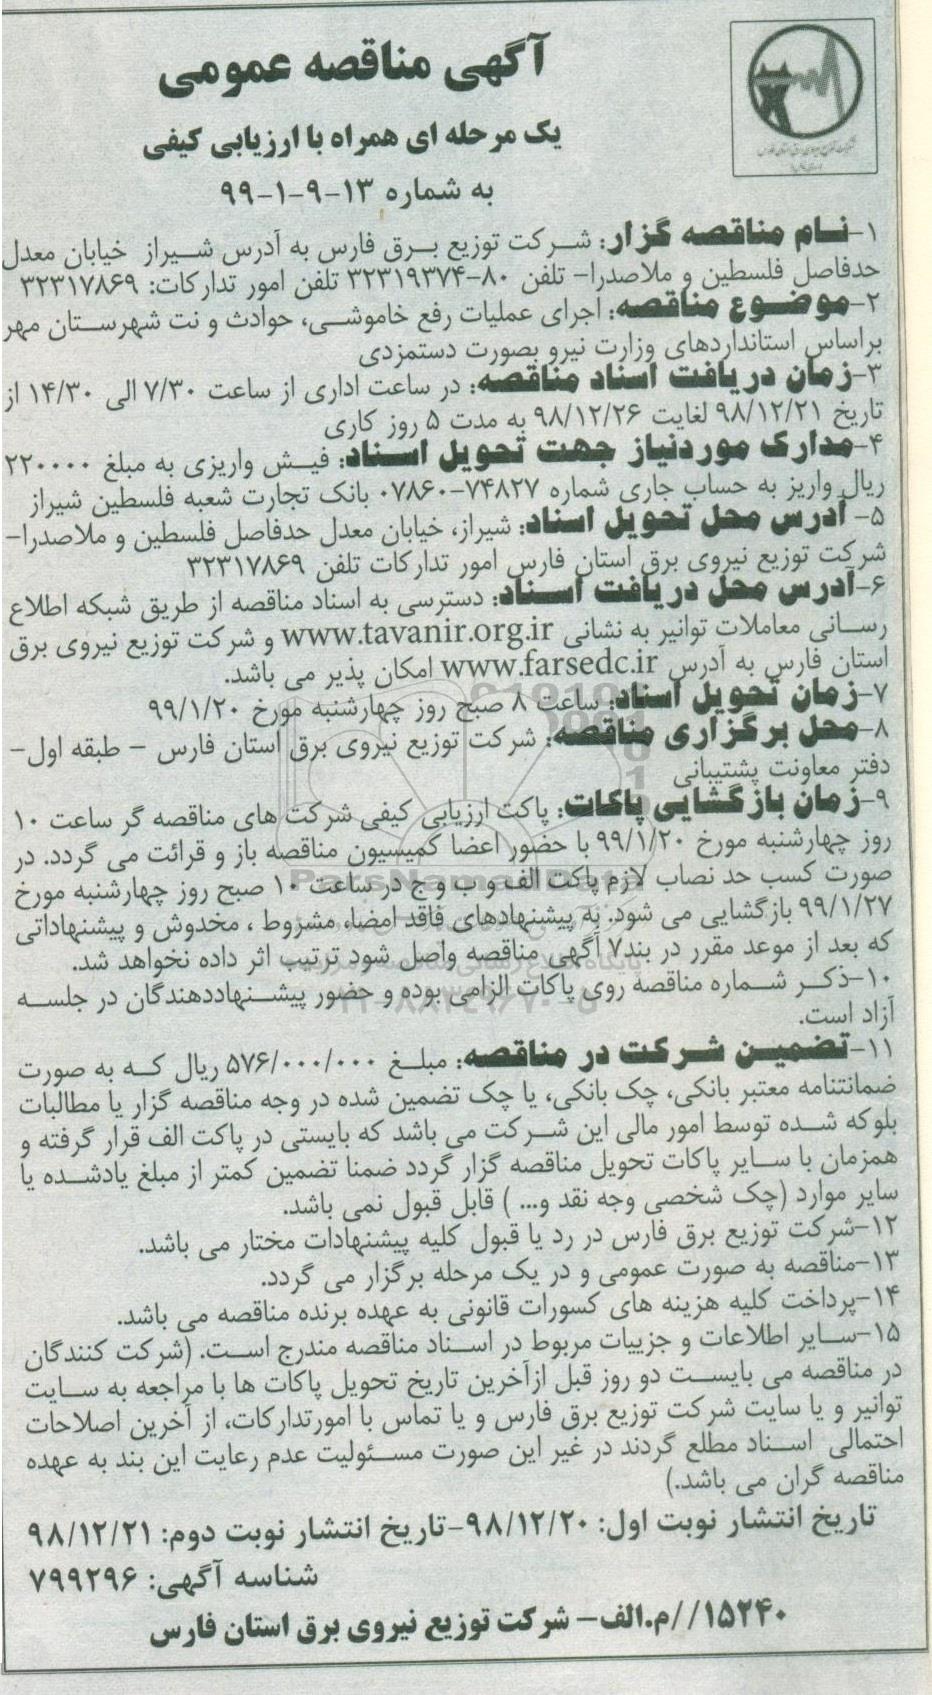 آگهی مناقصه عمومی
یک مرحله ای همراه با ارزیابی کیفی
به شماره ۱۳-۹-۱-۹۹
۱-نام مناقصه گزار: شرکت توزیع برق فارس به آدرس شیراز خیابان معدل
حدفاصل فلسطین و ملاصدرا- تلفن ۸۰-۳۲۳۱۹۳۷۴ تلفن امور تدارکات: ۳۲۳۱۷۸۶۹
۲-موضوع مناقصه: اجرای عملیات رفع خاموشی، حوادث و نت شهرستان مهر
براساس استانداردهای وزارت نیرو بصورت دستمزدی
۳-زمان دریافت اسناد مناقصه: در ساعت اداری از ساعت ۷/۳۰ الی ۱۴/۳۰ از
تاریخ ۹۸/۱۲/۲۱ لغایت ۹۸/۱۲/۲۶ به مدت ۵ روز کاری
۴-مدارک موردنیاز جهت تحویل اسناد: فیش واریزی به مبلغ ۲۲۰۰۰۰
ریال واریز به حساب جاری شماره ۷۴۸۲۷-۰۷۸۶۰ بانک تجارت شعبه فلسطین شیراز
۵- آدرس محل تحویل اسناد: شیراز، خیابان معدل حدفاصل فلسطین و ملاصدرا-
شرکت توزیع نیروی برق استان فارس امور تدارکات تلفن ۳۲۳۱۷۸۶۹
۶-آدرس محل دریافت اسناد: دسترسی به اسناد مناقصه از طریق شبکه اطلاع
رسانی معاملات توانیر به نشانی www.tavanir.org.ir و شرکت توزیع نیروی برق
استان فارس به آدرس www.farsedc.ir امکان پذیر می باشد.
۷-زمان تحویل اسناد: ساعت ۸ صبح روز چهارشنبه مورخ ۹۹/۱/۲۰
۸-محل برگزاری مناقصه: شرکت توزیع نیروی برق استان فارس - طبقه اول-
دفتر معاونت پشتیبانی
۹-زمان بازگشایی پاکات: پاکت ارزیابی کیفی شرکت های مناقصه گر ساعت ۱۰
روز چهارشنبه مورخ ۹۹/۱/۲۰ با حضور اعضا کمیسیون مناقصه باز و قرائت می گردد. در
صورت کسب حد نصاب لازم پاکت الف و ب و ج در ساعت ۱۰ صبح روز چهارشنبه مورخ
۹۹/۱/۲۷ بازگشایی می شود. به پیشنهادهای فاقد امضاء، مشروط ، مخدوش و پیشنهاداتی
که بعد از موعد مقرر در بند۷ آگهی مناقصه واصل شود ترتیب اثر داده نخواهد شد.
۱۰-ذکر شماره مناقصه روی پاکات الزامی بوده و حضور پیشنهاددهندگان در جلسه
آزاد است.
۱۱-تضمین شرکت در مناقصه: مبلغ ۵۷۶/۰۰۰/۰۰۰ ریال که به صورت
ضمانتنامه معتبر بانکی، چک بانکی، یا چک تضمین شده در وجه مناقصه گزار یا مطالبات
بلوکه شده توسط امور مالی این شرکت می باشد که بایستی در پاکت الف قرار گرفته و
همزمان با سایر پاکات تحویل مناقصه گزار گردد ضمنا تضمین کمتر از مبلغ یادشده یا
سایر موارد (چک شخصی وجه نقد و... ) قابل قبول نمی باشد.
۱۲-شرکت توزیع برق فارس در رد یا قبول کلیه پیشنهادات مختار می باشد.
۱۳-مناقصه به صورت عمومی و در یک مرحله برگزار می گردد.
۱۴-پرداخت کلیه هزینه های کسورات قانونی به عهده برنده مناقصه می باشد.
۱۵-سایر اطلاعات و جزییات مربوط در اسناد مناقصه مندرج است. (شرکت کنندگان
در مناقصه می بایست دو روز قبل ازآخرین تاریخ تحویل پاکات ها با مراجعه به سایت
توانیر و یا سایت شرکت توزیع برق فارس و یا تماس با امورتدارکات، از آخرین اصلاحات
احتمالی اسناد مطلع گردند در غیر این صورت مسئولیت عدم رعایت این بند به عهده
مناقصه گران می باشد.)
تاریخ انتشار نوبت اول: ۹۸/۱۲/۲۰-تاریخ انتشار نوبت دوم: ۹۸/۱۲/۲۱
شناسه آگهی: ۷۹۹۲۹۶
۱۵۲۴۰//م.الف- شرکت توزیع نیروی برق استان فارس
ParsNamadData